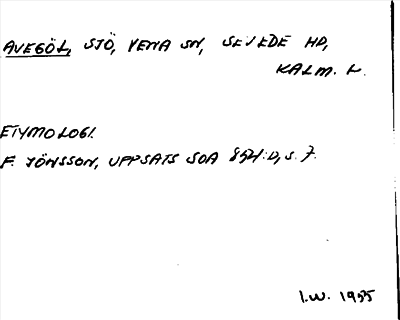 AVEGÖL, SJÖ, VENA SN, SEVEDE HD,
KALM. L.
ETYMOLOGI.
F. JÖNSSON, UPPSATS SOA 854:D, S. 7.
I.W. 1955